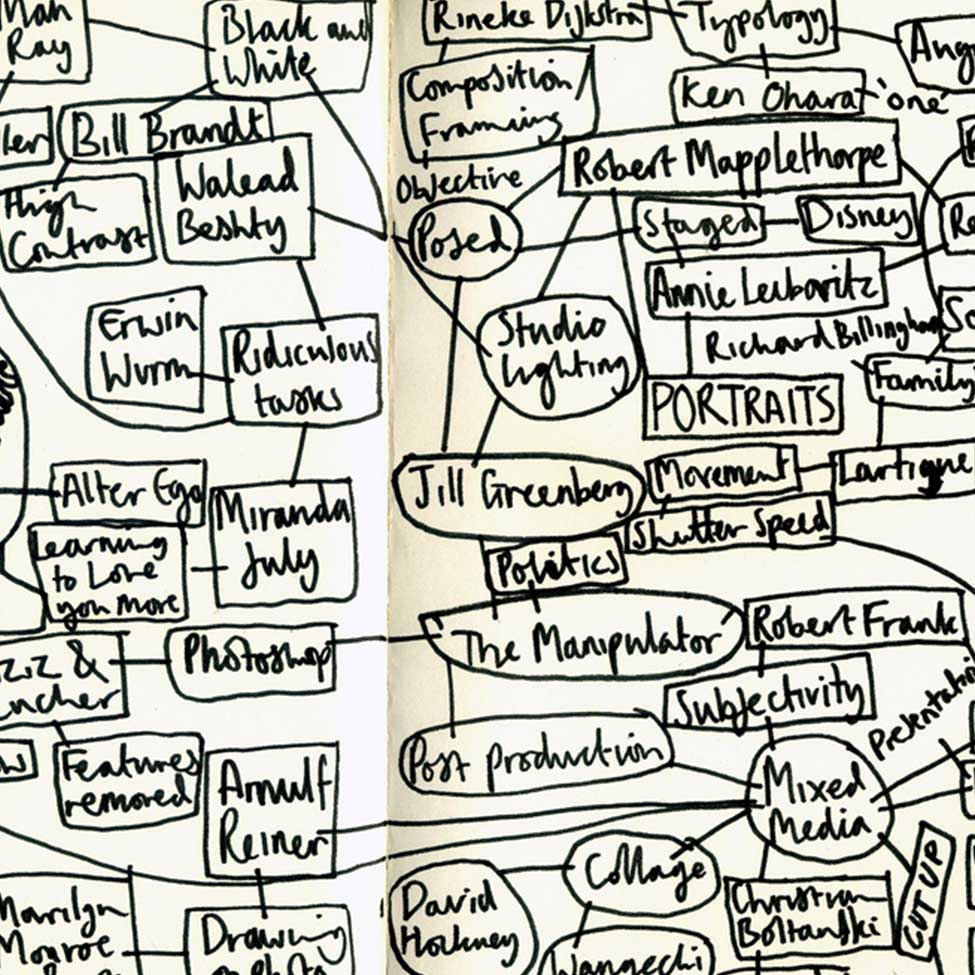 Man
Ray
Black and
White
Bill Brandt
High
Contrast
Walead
Beshty
Erwin
Wurm
Ridiculous
tasks
Alter Ego
Learning
to Love
you More
Miranda
July
Photoshop
Features
removed
Arnulf
Reiner
Marilyn
Monroe
Drawing
Rineke Dijkstra
Typology
Composition/
Framing
Ken Ohara
'one'
Robert Mapplethorpe
Objective
Posed
Staged
Disney
Annie Leibovitz
Studio
Lighting
Richard Billingham
Family
PORTRAITS
Jill Greenberg
Movement
Lartigue
Shutter Speed
Politics
The Manipulator
Robert Frank
Subjectivity
Presentation
Post production
Mixed
Media
Collage
David
Hockney
Christian
Boltanski
CUT UP
Wangechi